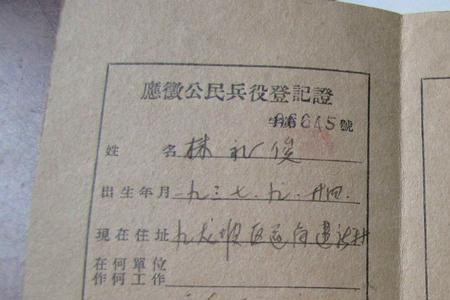 應徵公民兵役登記證
字第06645號
姓名 林礼俊
出生年月 一九三七.九.廿四
現在住址 九龙坡区
在何單位
作何工作